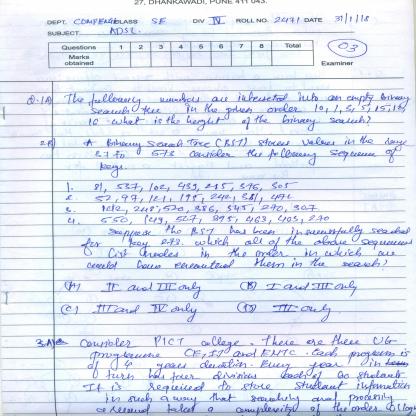 27, DHANKAWADI, PUNE 411 043.
DEPT. COMPENGG CLASS SE DIV IV ROLL NO. 2471 DATE 31/1/18
SUBJECT ADSL
Questions 1 2 3 4 5 6 7 8 Total
Marks obtained
03
Examiner
Q.1A) The following numbers are inserted into an empty binary
search tree in the given order 10, 1, 3, 5, 15, 12,
16 what is the height of the binary search?
2B) A Binary Search Tree (BST) stores values in the range
37 to 573 consider the following sequence of
keys.
1. 81, 537, 102, 439, 285, 376, 305
2. 52, 97, 121, 195, 242, 381, 472
3. 142, 248, 520, 386, 345, 270, 307
4. 550, 149, 507, 395, 463, 402, 270
suppose the BST has been unsuccessfully searched
for key 273. which all of the above sequences
list nodes in the order in which we
could have encountered them in the search?
(A) II and III only (B) I and III only
(C) III and IV only (D) III only
3.A) Consider PICT college. There are three UG
programme CE, IT and ENTC. Each program is
of 4 years duration. Every year in
turn has four division each of 60 students
It is required to store student information
in such a way that searching and processing
a complexity of the order O(log